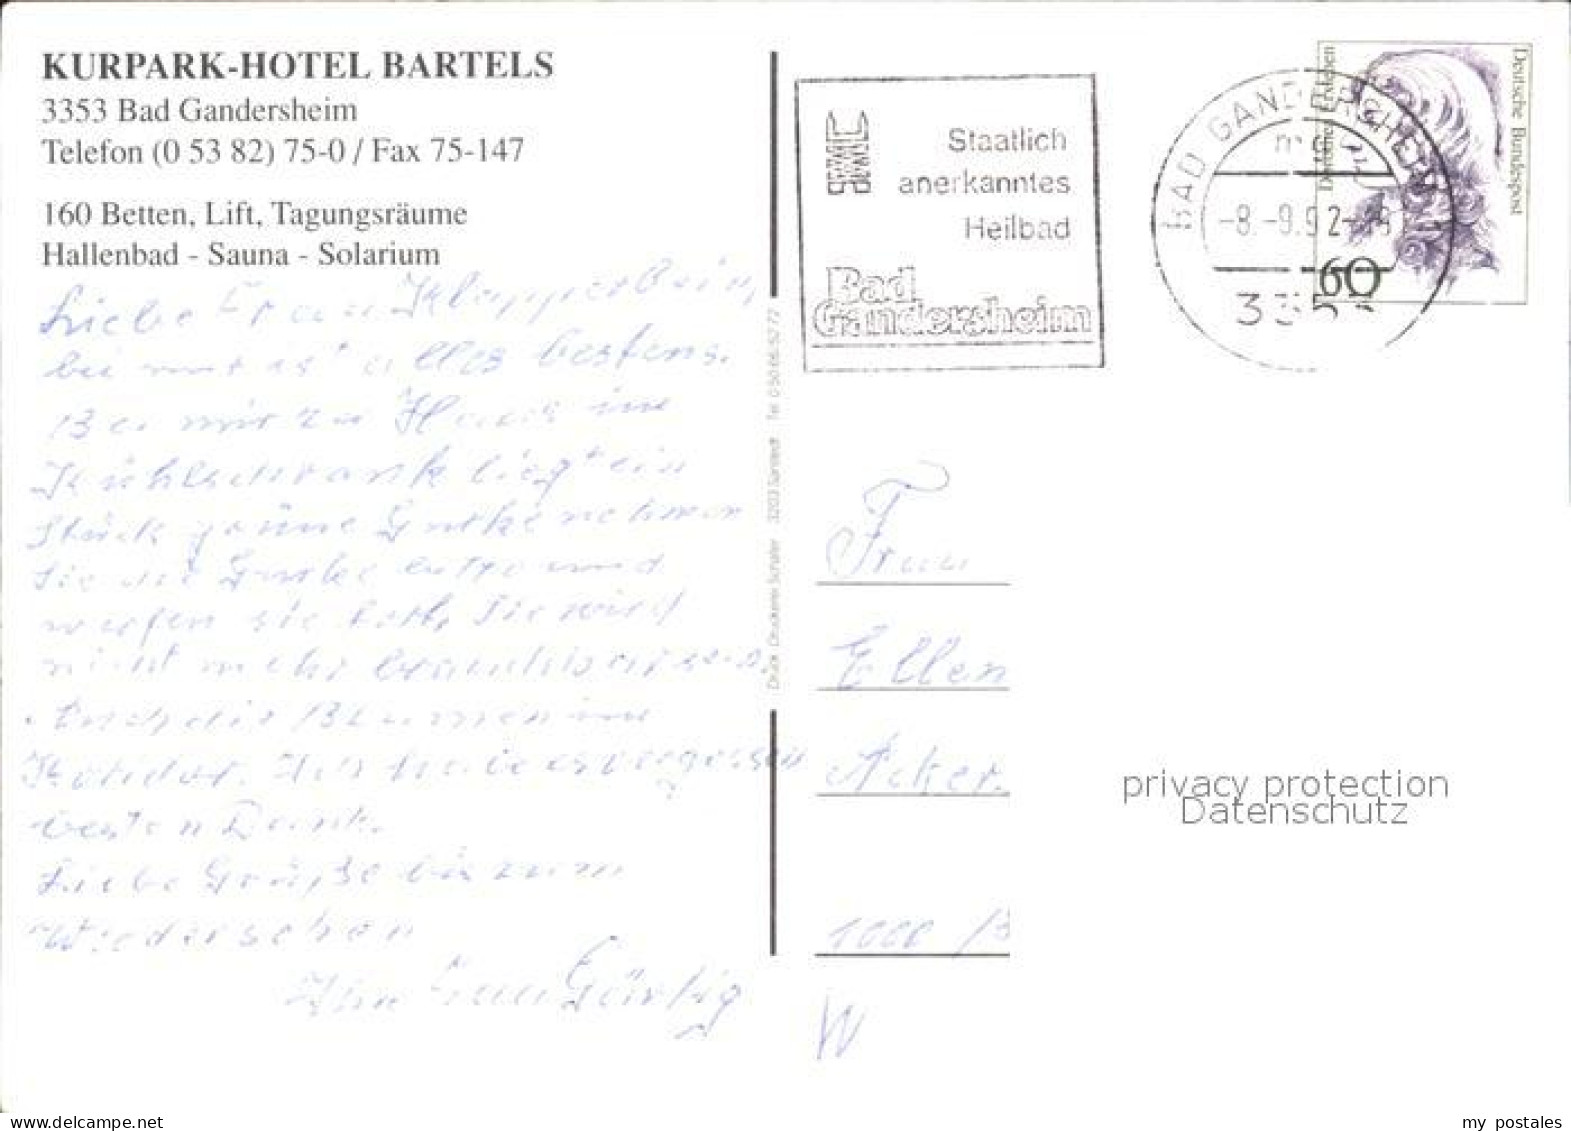 KURPARK-HOTEL BARTELS
3353 Bad Gandersheim
Telefon (0 53 82) 75-0 / Fax 75-147
160 Betten, Lift, Tagungsräume
Hallenbad - Sauna - Solarium
Liebe Frau Klapperbein,
bei mir ist alles bestens.
Bei mir zu Haus im
Kühlschrank liegt ein
Stück grüne Gurke nehmen
Sie die Gurke und
werfen sie fort, Sie wird
nicht mehr brauchbar sein,
Auch die Blumen im
Ich habe es vergessen
besten Dank.
Liebe Grüße bis zum
Wiedersehen
Ihre Frau Gärtig
Druck: Druckerei Schäfer 3203 Sarstedt Tel. 0 50 66/52 72
Staatlich
anerkanntes
Heilbad
Bad
Gandersheim
BAD GANDERSHEIM 1
-8.-9.92-
3353
Deutsche Bundespost
Dorothea Erxleben
60
Frau
Ellen
Acker.
1000 /B
W
privacy protection
Datenschutz
my postales